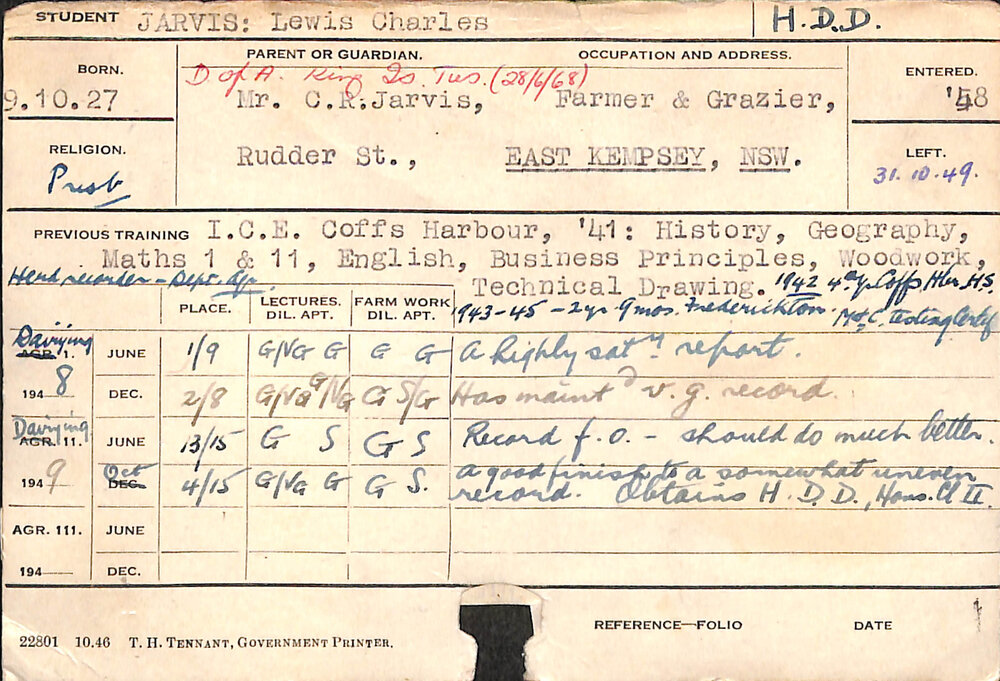 STUDENT JARVIS: Lewis Charles H.D.D.
BORN. PARENT OR GUARDIAN. OCCUPATION AND ADDRESS. ENTERED.
D of A. King 2s. Tues. (28/6/68)
9.10.27 Mr. C.R. Jarvis, Farmer & Grazier, '48
RELIGION. Rudder St., EAST KEMPSEY, NSW. LEFT.
Presb 31.10.49.
PREVIOUS TRAINING I.C.E. Coffs Harbour, '41: History, Geography,
Maths 1 & 11, English, Business Principles, Woodwork,
Herd recorder - Dept. Agr. Technical Drawing. 1942 4th Yr Coffs Hbr. H.S.
1943-45 - 2 yr 9 mos. Frederickton. M & C. Testing Certif
PLACE. LECTURES. DIL. APT. FARM WORK DIL. APT.
Dairying AGR. 1. JUNE 1/9 G/VG G G G A highly sat'y report.
194 8 DEC. 2/8 G/VG G/VG G S/G Has maint'd v.g. record.
Dairying AGR. 11. JUNE 13/15 G S G S Record f.o. - should do much better.
194 9 Oct DEC. 4/15 G/VG G G S. A good finish to a somewhat uneven
record. Obtains H.D.D., Hons. Cl II.
AGR. 111. JUNE
194 DEC.
REFERENCE—FOLIO DATE
22801 10.46 T. H. TENNANT, GOVERNMENT PRINTER.